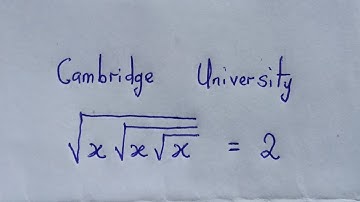 Cambridge University
√(x√(x√x)) = 2